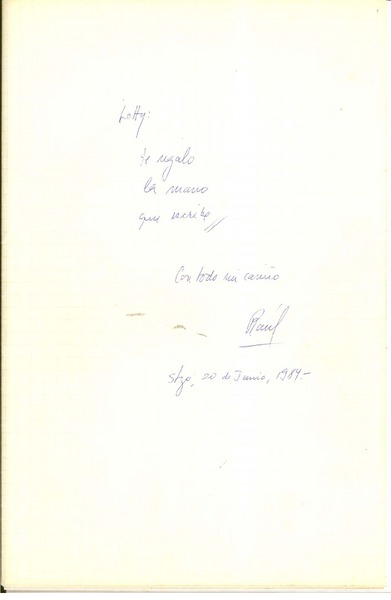 Lotty:
te regalo
la mano
que escribe //
Con todo mi cariño
Raúl
Stgo, 20 de Junio, 1984.-